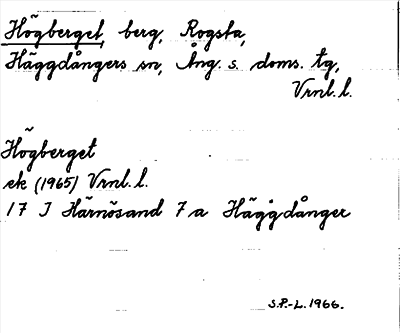 Högberget, berg, Rogsta,
Häggdångers sn, Ång. s. doms. tg,
Vrnl. l.
Högberget
ek (1965) Vrnl. l.
17 J Härnösand 7 a Häggdånger
S.P.-L. 1966.